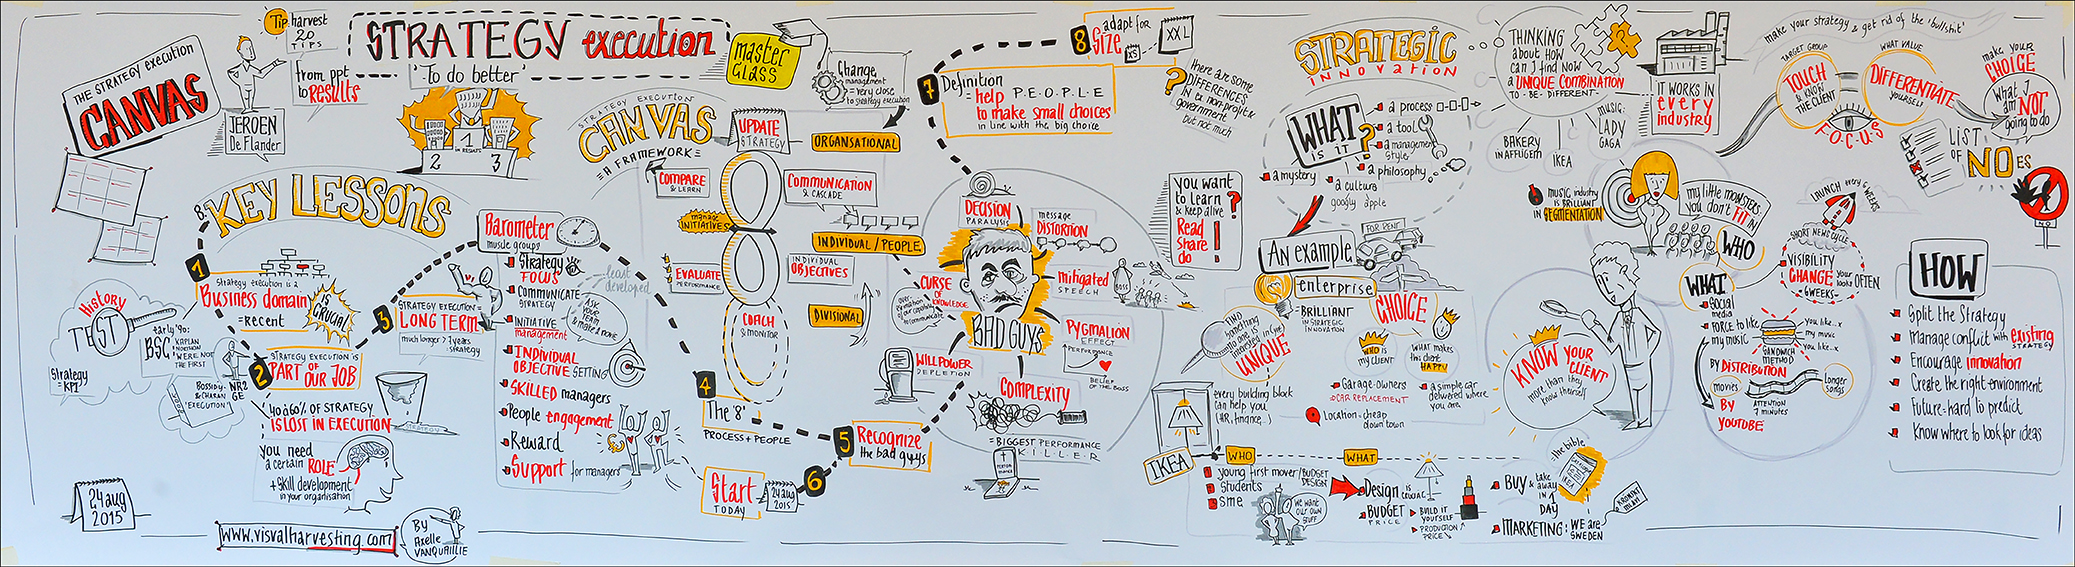 THE STRATEGY EXECUTION
CANVAS
Tip harvest
20
TIPS
from ppt
to RESULTS
JEROEN
De Flander
STRATEGY execution
'To do better'
2
1
3
master
CLASS
Change
management
= very close
to strategy execution
8
KEY LESSONS
1
Strategy execution is a
Business domain
= Recent
IS
CRUCIAL
History
TEST
early '90:
BSC
KAPLAN
NORTON
WERE NOT
THE FIRST
Strategy
= KPI
Bossidy
& CHARAN
'EXECUTION'
NR2
GE
2
STRATEGY EXECUTION IS
PART OF
OUR JOB
40 à 60% OF STRATEGY
IS LOST IN EXECUTION
STRATEGY
you need
a certain ROLE
+ skill development
in your organisation
3
STRATEGY EXECUTION =
LONG TERM
much longer > 7 years
strategy
Barometer
muscle groups
Strategy
FOCUS
least
developed
COMMUNICATE
STRATEGY
INITIATIVE
management
ASK
YOUR
TEAM
& make a move
INDIVIDUAL
OBJECTIVE SETTING
SKILLED managers
People engagement
Reward
Support for managers
24 aug
2015
www.visualharvesting.com
By
Axelle
VANQUAILLIE
STRATEGY EXECUTION
CANVAS
= A FRAMEWORK =
UPDATE
STRATEGY
ORGANISATIONAL
COMPARE
& LEARN
COMMUNICATION
& CASCADE
manage
INITIATIVES
INDIVIDUAL / PEOPLE
EVALUATE
PERFORMANCE
INDIVIDUAL
OBJECTIVES
COACH
& MONITOR
DIVISIONAL
4
The '8'
PROCESS + PEOPLE
5
Recognize
the bad guys
6
Start
TODAY
24 aug
2015
7
Definition
= help P.E.O.P.L.E
to make small choices
in line with the big choice
8
adapt for
Size
XS
XXL
?
there are some
DIFFERENCES
in a non profit &
government
but not much
DECISION
PARALYSIS
message
DISTORTION
CURSE
OF KNOWLEDGE
mitigated
SPEECH
BOSS
BAD GUYS
PYGMALION
EFFECT
PERFORMANCE
BELIEF OF THE BOSS
WILLPOWER
DEPLETION
COMPLEXITY
= BIGGEST PERFORMANCE
KILLER
you want
to learn
& keep alive
Read
Share
do
? !
STRATEGIC
INNOVATION
WHAT
IS IT ?
a process
a tool
a management
style
a philosophy
a mystery
a culture
googly apple
An example
FOR RENT
enterprise
= BRILLIANT
IN STRATEGIC
INNOVATION
FIND
something
no one is
interested in (yet)
UNIQUE
CHOICE
WHO IS
my CLIENT
WHAT makes
this client
HAPPY
Garage-owners
= CAR REPLACEMENT
a simple car
delivered where
you are
Location = cheap
down town
every building block
can help you
(HR, finance...)
IKEA
WHO
young first mover / BUDGET
DESIGN
Students
SME
we want
our own
stuff
WHAT
Design is
CRUCIAL
BUDGET
PRICE
BUILD IT
YOURSELF
PRODUCTION
PRICE
Buy & take
away
IN
1
DAY
the bible
IKEA
MARKETING: WE are
SWEDEN
THINKING
about HOW
can I find NOW
a UNIQUE COMBINATION
TO - BE - DIFFERENT
BAKERY
IN AFFLIGEM
IKEA
MUSIC:
LADY
GAGA
IT WORKS IN
every
industry
MUSIC industry
IS BRILLIANT
IN SEGMENTATION
my little monsters:
you don't FIT IN
WHO
KNOW YOUR
CLIENT
more than they
know theirself
WHAT
Social
media
FORCE to like
my music
SANDWICH
METHOD
you like...x
my music
you like...x
BY DISTRIBUTION
movies
Longer
songs
ATTENTION
7 MINUTES
BY
YOUTUBE
LAUNCH every 6 WEEKS
SHORT NEWS CYCLE
VISIBILITY
CHANGE your looks OFTEN
6 WEEKS
make your strategy & get rid of the 'bullshit'
TARGET GROUP
TOUCH
& KNOW
THE CLIENT
WHAT VALUE
DIFFERENTIATE
yourself
F.O.C.U.S
make your
CHOICE
What I
am NOT
going to do
LIST
OF NOES
HOW
Split the Strategy
Manage conflict with existing
STRATEGY
Encourage innovation
Create the right environment
Future = hard to predict
Know where to look for ideas